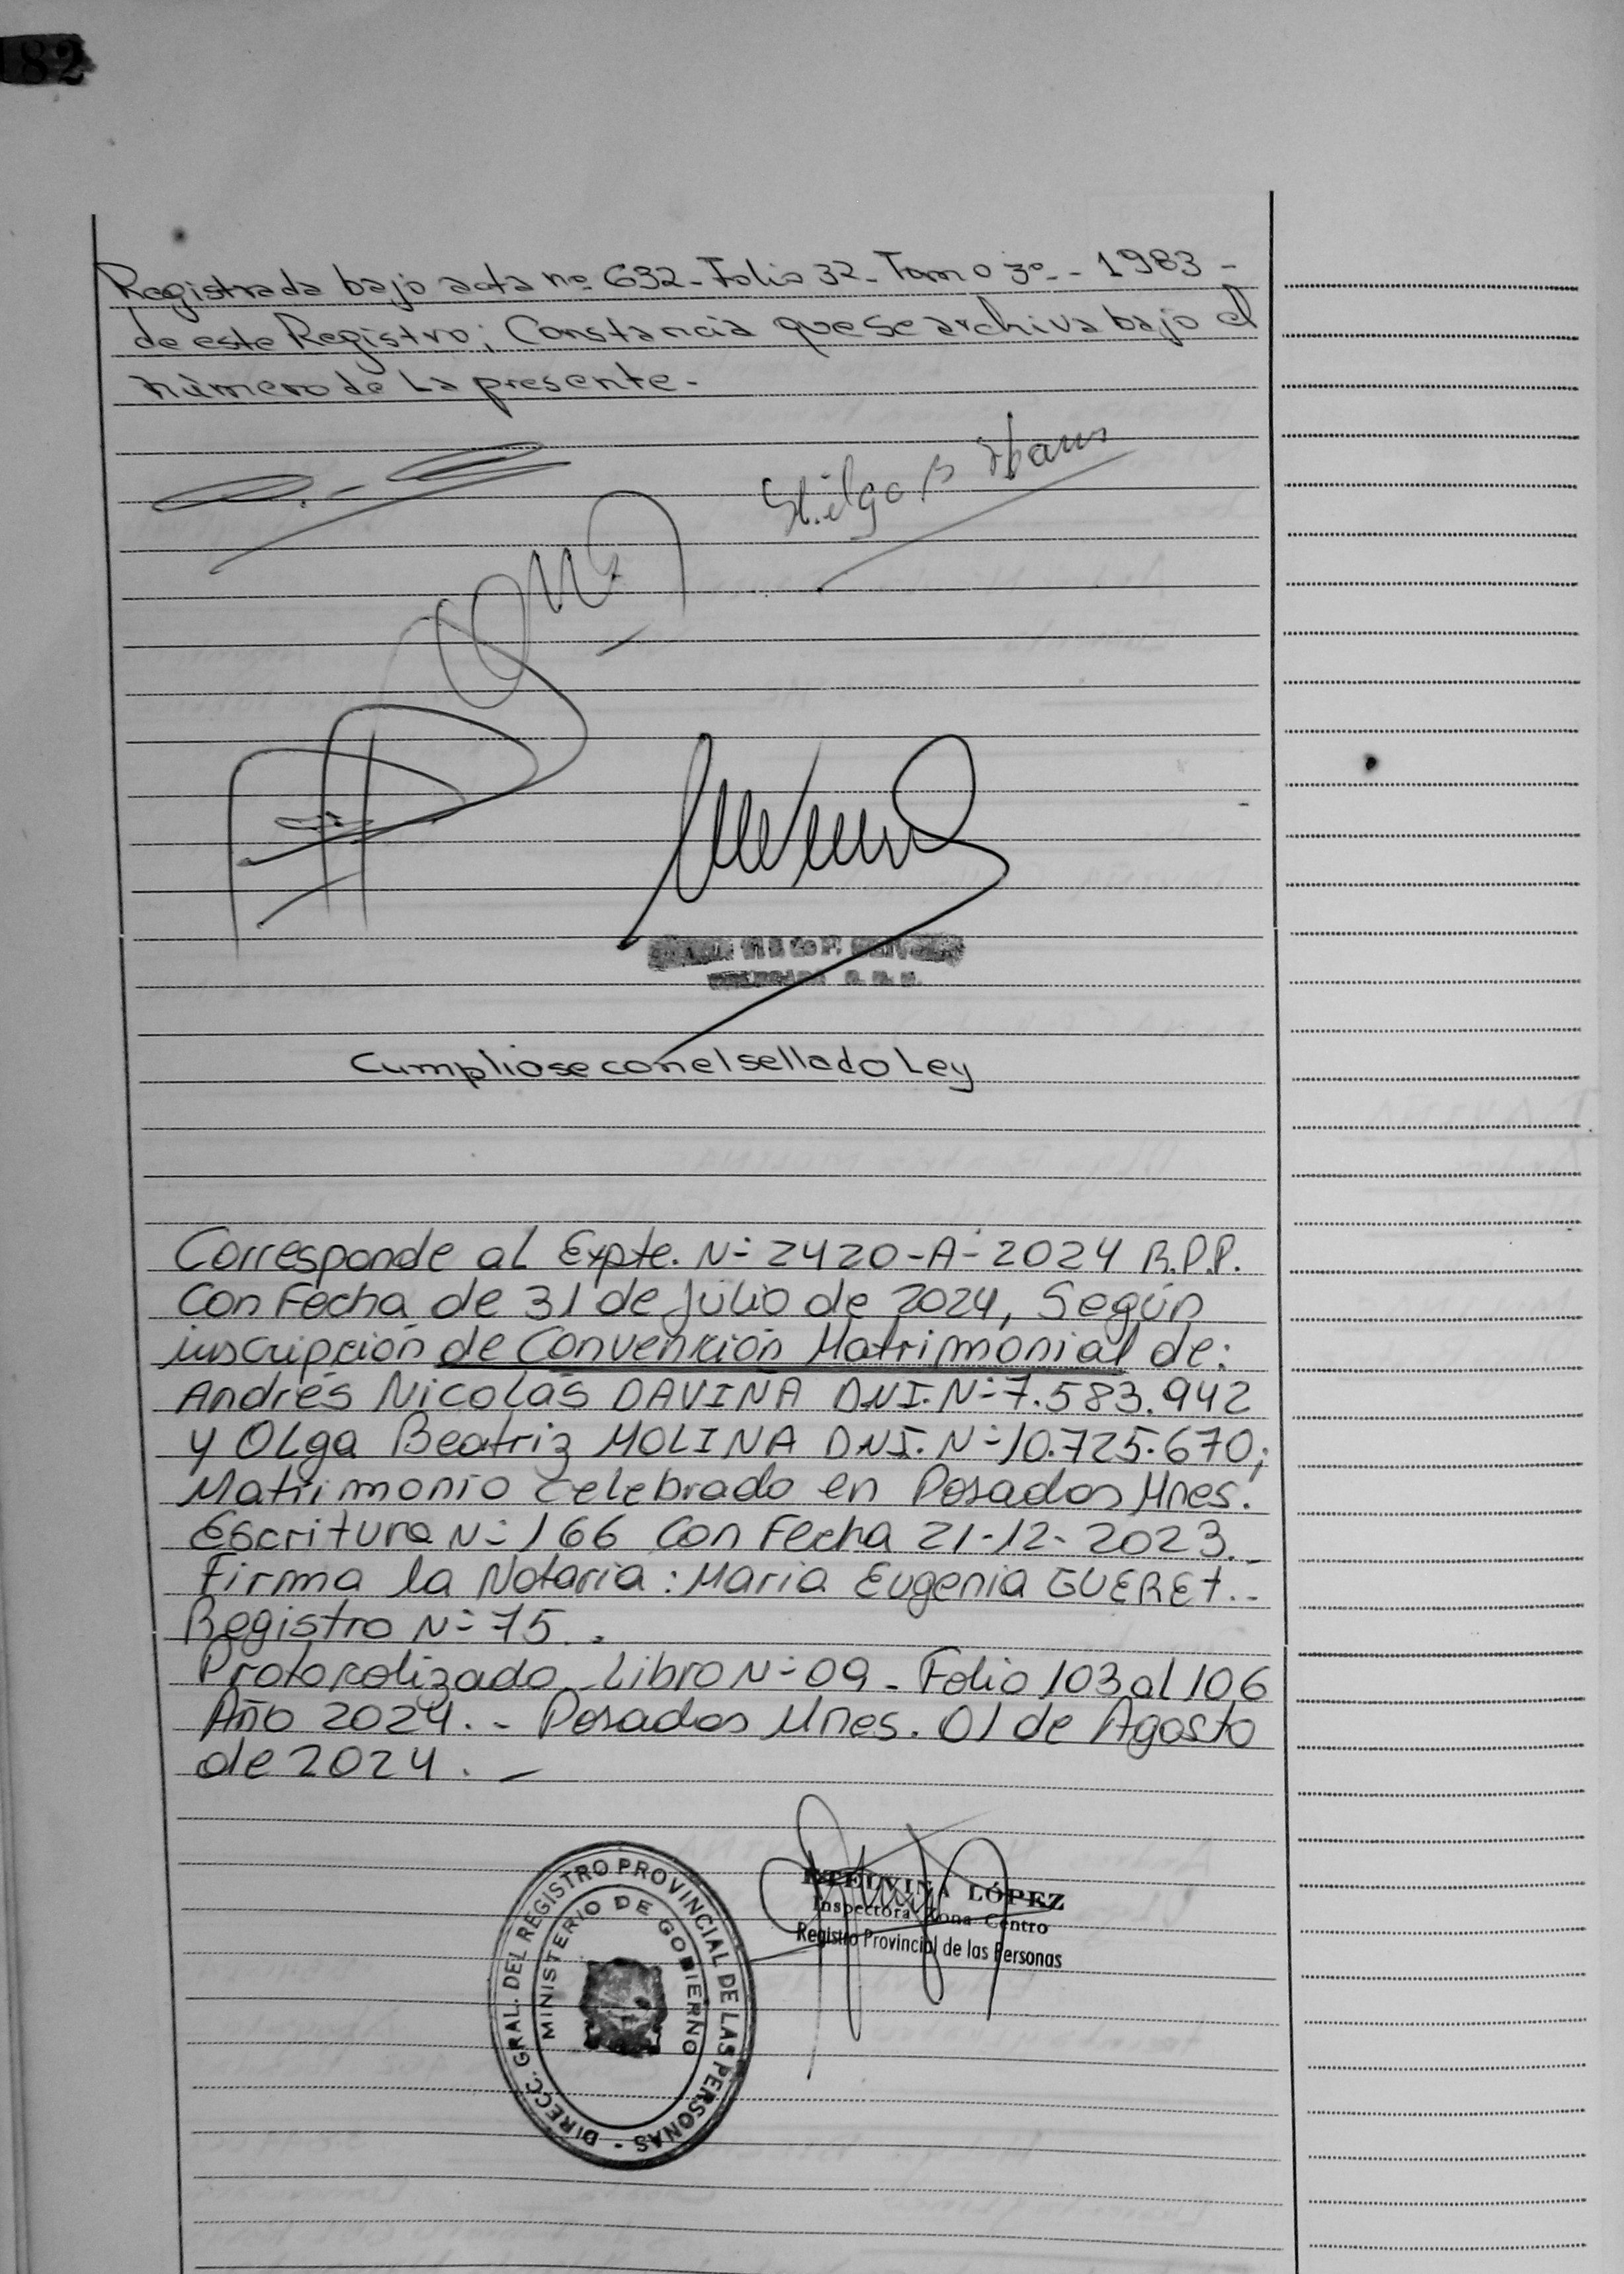 182
Registrada bajo acta nº 632 - Folio 32 - Tomo 3º - 1983 -
de este Registro; Constancia que se archiva bajo el
número de La presente.
Cumpliose con el sellado Ley
Corresponde al Expte. Nº 2420-A-2024 R.P.P.
Con Fecha de 31 de Julio de 2024, Según
inscripción de Convención Matrimonial de:
Andrés Nicolás DAVIÑA DNI. Nº 7.583.942
y Olga Beatriz MOLINA DNI. Nº 10.725.670;
Matrimonio celebrado en Posadas Mnes.
Escritura Nº 166 Con Fecha 21-12-2023.-
Firma la Notaria: Maria Eugenia GUERET.-
Registro Nº 75.-
Protocolizado Libro Nº 09 - Folio 103 al 106
Año 2024. - Posadas Mnes. 01 de Agosto
de 2024. -
ETELVINA LÓPEZ
Inspectora Zona Centro
Registro Provincial de las Personas
DIRECC. GRAL. DEL REGISTRO PROVINCIAL DE LAS PERSONAS -
MINISTERIO DE GOBIERNO